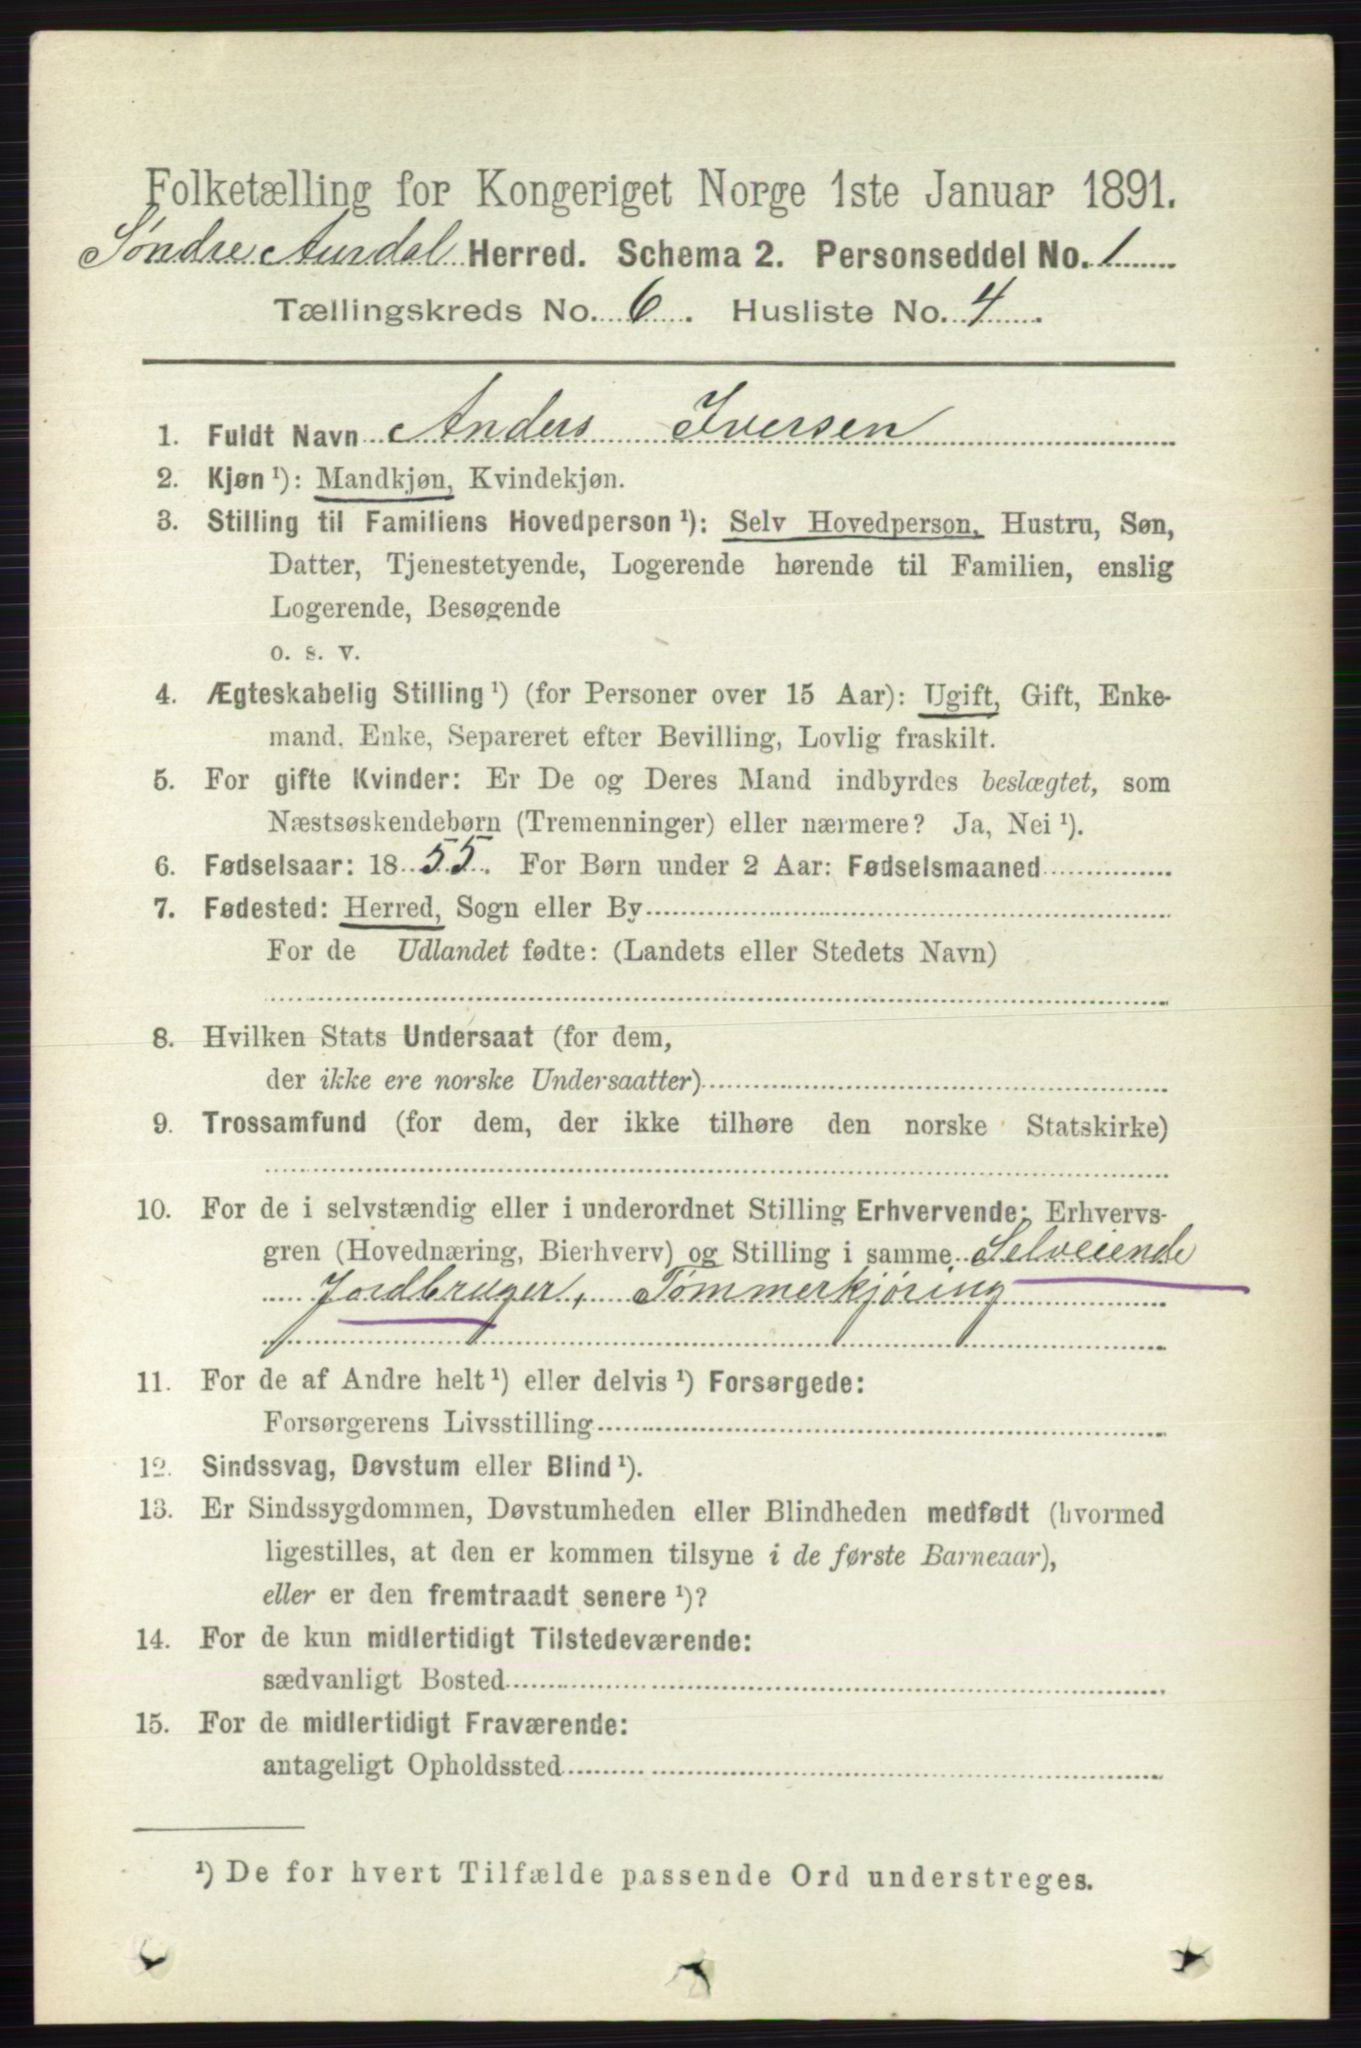 Folketælling for Kongeriget Norge 1ste Januar 1891.
Søndre Aurdal Herred. Schema 2. Personseddel No. 1
Tællingskreds No. 6. Husliste No. 4.
1. Fuldt Navn Anders Iversen
2. Kjøn ¹): Mandkjøn, Kvindekjøn.
3. Stilling til Familiens Hovedperson ¹): Selv Hovedperson, Hustru, Søn,
Datter, Tjenestetyende, Logerende hørende til Familien, enslig
Logerende, Besøgende
o. s. v.
4. Ægteskabelig Stilling ¹) (for Personer over 15 Aar): Ugift, Gift, Enke-
mand, Enke, Separeret efter Bevilling, Lovlig fraskilt.
5. For gifte Kvinder: Er De og Deres Mand indbyrdes beslægtet, som
Næstsøskendebørn (Tremenninger) eller nærmere? Ja, Nei ¹).
6. Fødselsaar: 1855. For Børn under 2 Aar: Fødselsmaaned
7. Fødested: Herred, Sogn eller By
For de Udlandet fødte: (Landets eller Stedets Navn)
8. Hvilken Stats Undersaat (for dem,
der ikke ere norske Undersaatter)
9. Trossamfund (for dem, der ikke tilhøre den norske Statskirke)
10. For de i selvstændig eller i underordnet Stilling Erhvervende: Erhvervs-
gren (Hovednæring, Bierhverv) og Stilling i samme Selveiende
Jordbruger, Tømmerkjøring
11. For de af Andre helt ¹) eller delvis ¹) Forsørgede:
Forsørgerens Livsstilling
12. Sindssvag, Døvstum eller Blind ¹).
13. Er Sindssygdommen, Døvstumheden eller Blindheden medfødt (hvormed
ligestilles, at den er kommen tilsyne i de første Barneaar),
eller er den fremtraadt senere ¹)?
14. For de kun midlertidigt Tilstedeværende:
sædvanligt Bosted
15. For de midlertidigt Fraværende:
antageligt Opholdssted
¹) De for hvert Tilfælde passende Ord understreges.